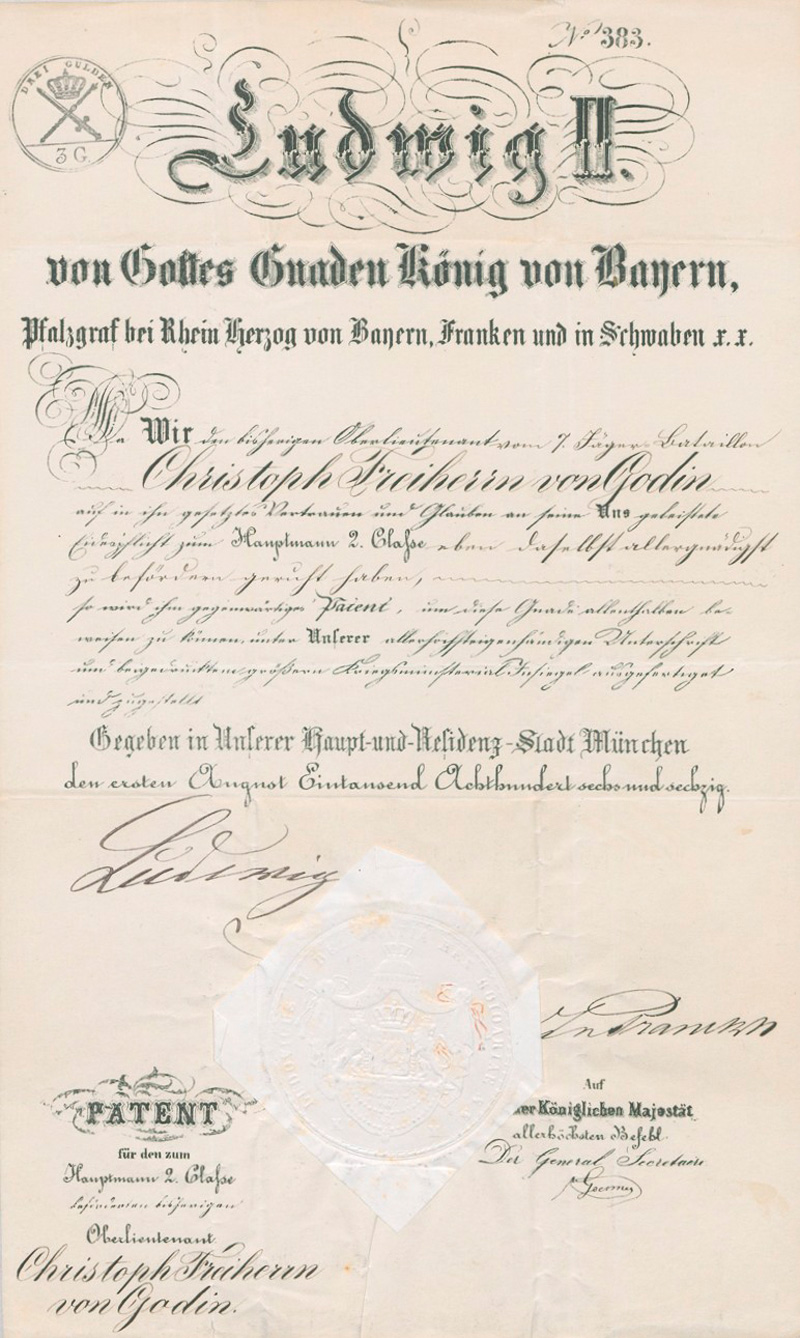 No 383.
DREI GULDEN
3 G.
Ludwig II.
von Gottes Gnaden König von Bayern,
Pfalzgraf bei Rhein Herzog von Bayern, Franken und in Schwaben x. x.
Da Wir den bisherigen Oberlieutenant vom 7. Jäger-Bataillon
Christoph Freiherrn von Godin
auf in ihn gesetztes Vertrauen und Glauben an seine Uns geleistete
Eidespflicht zum Hauptmann 2. Classe eben daselbst allergnädigst
zu befördern geruht haben,
so wird ihm gegenwärtiges Patent, um diese Gnade allenthalben be-
weisen zu können, unter Unserer allerhöchsteigenhändigen Unterschrift
und beigedrucktem größern Kriegsministerial Insiegel ausgefertiget
und zugestellt
Gegeben in Unserer Haupt-und-Residenz-Stadt München
den ersten August Eintausend Achthundert sechs und sechzig.
Ludwig
PATENT
für den zum
Hauptmann 2. Classe
beförderten bisherigen
Oberlieutenant
Christoph Freiherrn
von Godin.
Auf
er Königlichen Majestät
allerhöchsten Befehl.
Der General Secretaire